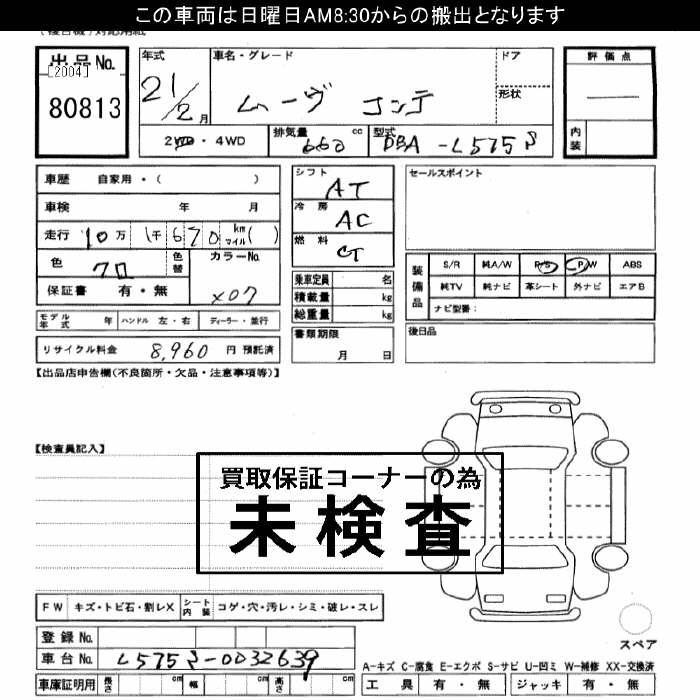 この車両は日曜日AM8:30からの搬出となります
出品No.
[2004]
80813
年式
21/2月
車名・グレード
ムーヴ コンテ
ドア
形状
評価点
内装
2WD・4WD
排気量
660 cc
型式
DBA-L575S
車歴 自家用・( )
車検 年 月
走行 10万 1千670 km マイル( )
色 クロ
色替
カラーNo.
X07
保証書 有・無
モデル年式 年 ハンドル 左・右 ディーラー・並行
リサイクル料金 8,960 円 預託済
シフト AT
冷房 AC
燃料
乗車定員 名
積載量 kg
総重量 kg
書類期限
月 日
セールスポイント
装備品
S/R 純A/W P/S P/W ABS
純TV 純ナビ 革シート 外ナビ エアB
ナビ型番:
後日品
【出品店申告欄(不良箇所・欠品・注意事項等)】
【検査員記入】
買取保証コーナーの為
未検査
FW キズ・トビ石・割レX シート内装 コゲ・穴・汚レ・シミ・破レ・スレ
登録No.
車台No. L575S-0032639
車庫証明用 長さ cm 幅 cm 高さ cm
スペア
A-キズ C-腐食 E-エクボ S-サビ U-凹ミ W-補修 XX-交換済
工具 有・無 ジャッキ 有・無